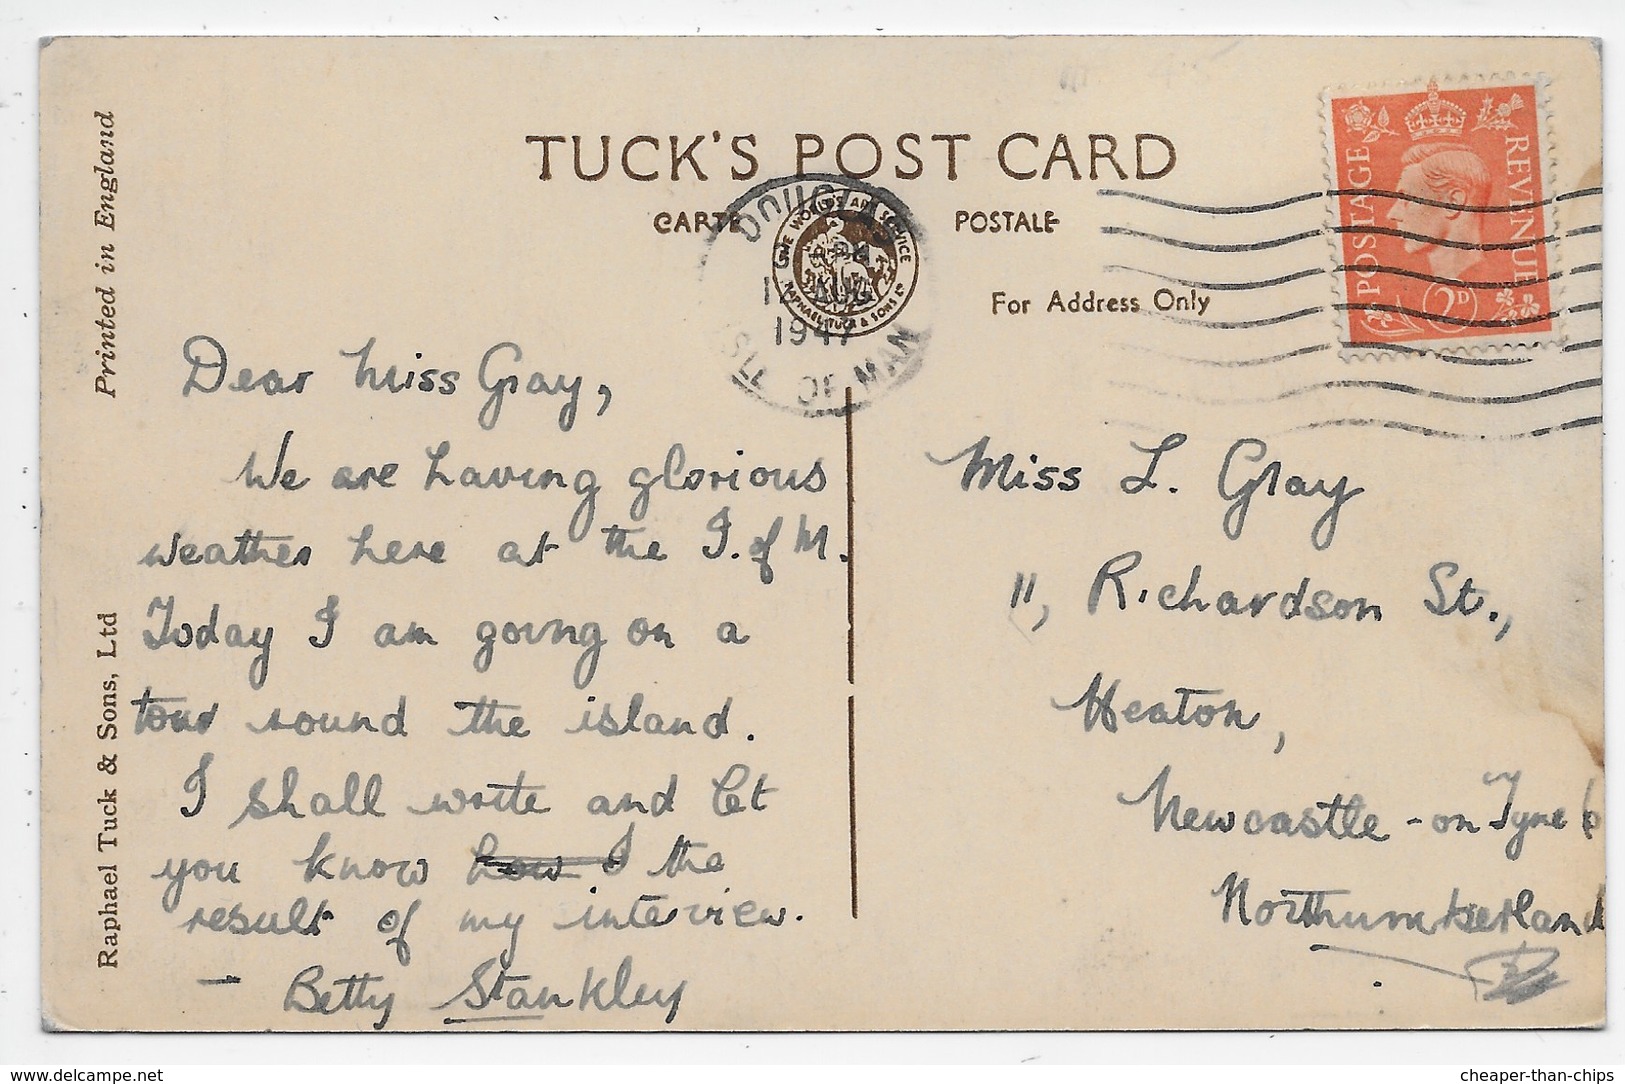 TUCK'S POST CARD
CARTE POSTALE
For Address Only
THE WORLD'S ART SERVICE
RAPHAEL TUCK & SONS LD
DOUGLAS
AUG
1947
ISLE OF MAN
POSTAGE
REVENUE
2D
Printed in England
Raphael Tuck & Sons, Ltd
Dear Miss Gray,
We are having glorious
weather here at the I. of M.
Today I am going on a
tour round the island.
I shall write and let
you know how I the
result of my interview.
– Betty Stankley
Miss L. Gray
11, Richardson St.,
Heaton,
Newcastle-on Tyne 6
Northumberland
www.delcampe.net
cheaper-than-chips